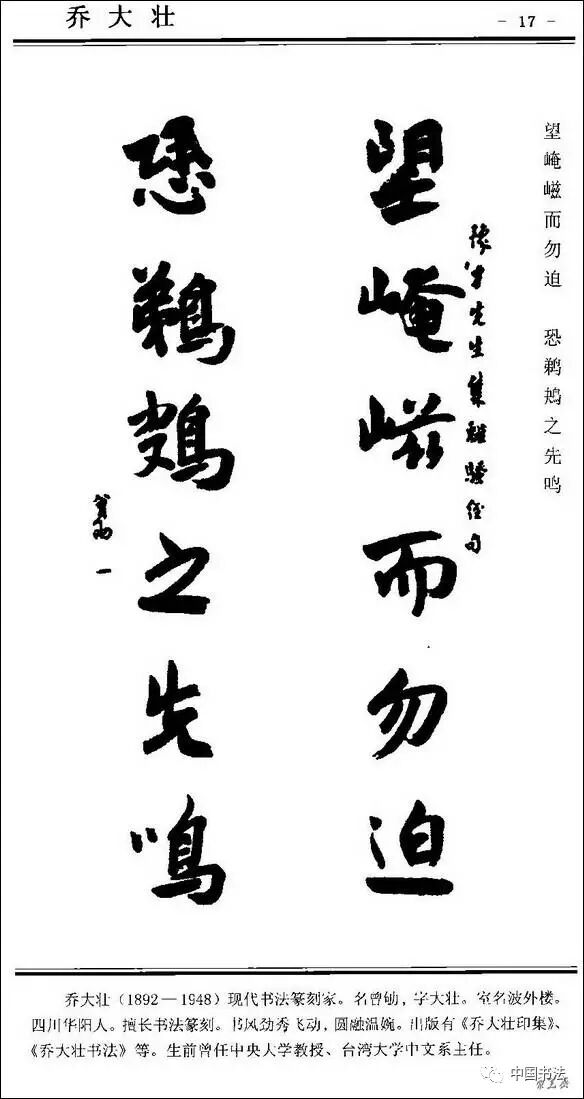 乔大壮
- 17 -
望崦嵫而勿迫 恐鹈鴂之先鸣
望崦嵫而勿迫
豫才先生集離騷経句
恐鵜鴂之先鳴
一
乔大壮（1892—1948）现代书法篆刻家。名曾劬，字大壮。室名波外楼。
四川华阳人。擅长书法篆刻。书风劲秀飞动，圆融温婉。出版有《乔大壮印集》、
《乔大壮书法》等。生前曾任中央大学教授、台湾大学中文系主任。
中国书法